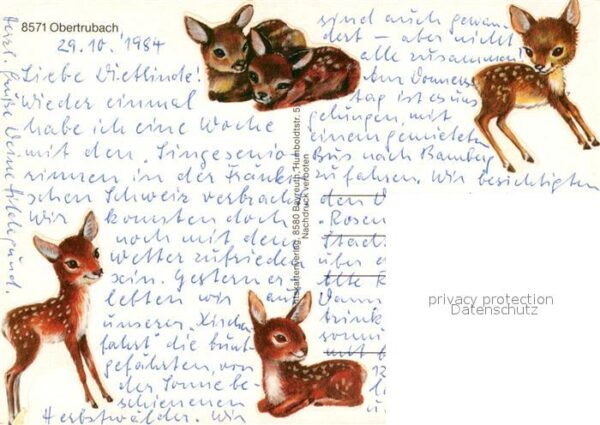 8571 Obertrubach
29.10.1984
Liebe Dietlinde!
Wieder einmal
habe ich eine Woche
mit den "Singesenio
rinnen in der Fränki
schen Schweiz verbracht
Wir konnten doch
noch mit dem
Wetter zufrieden
sein. Gestern er
lebten wir auf
unserer "Kirchen
fahrt" die bunt
gefärbten, von
der Sonne be-
schienenen
Herbstwälder. Wir
sind auch gewan
dert – aber nicht
alle zusammen!
Am Donners
tag ist es uns
gelungen, mit
einem gemieteten
Bus nach Bamberg
zu fahren. Wir besichtigten
den D
"Rosen
Stadt
über
Alte
Dann
trink
sonni
mit
Herzl. Grüße Deine Hildegund.
8580 Bayreuth, Humboldtstr. 5
Nachdruck verboten
privacy protection
Datenschutz